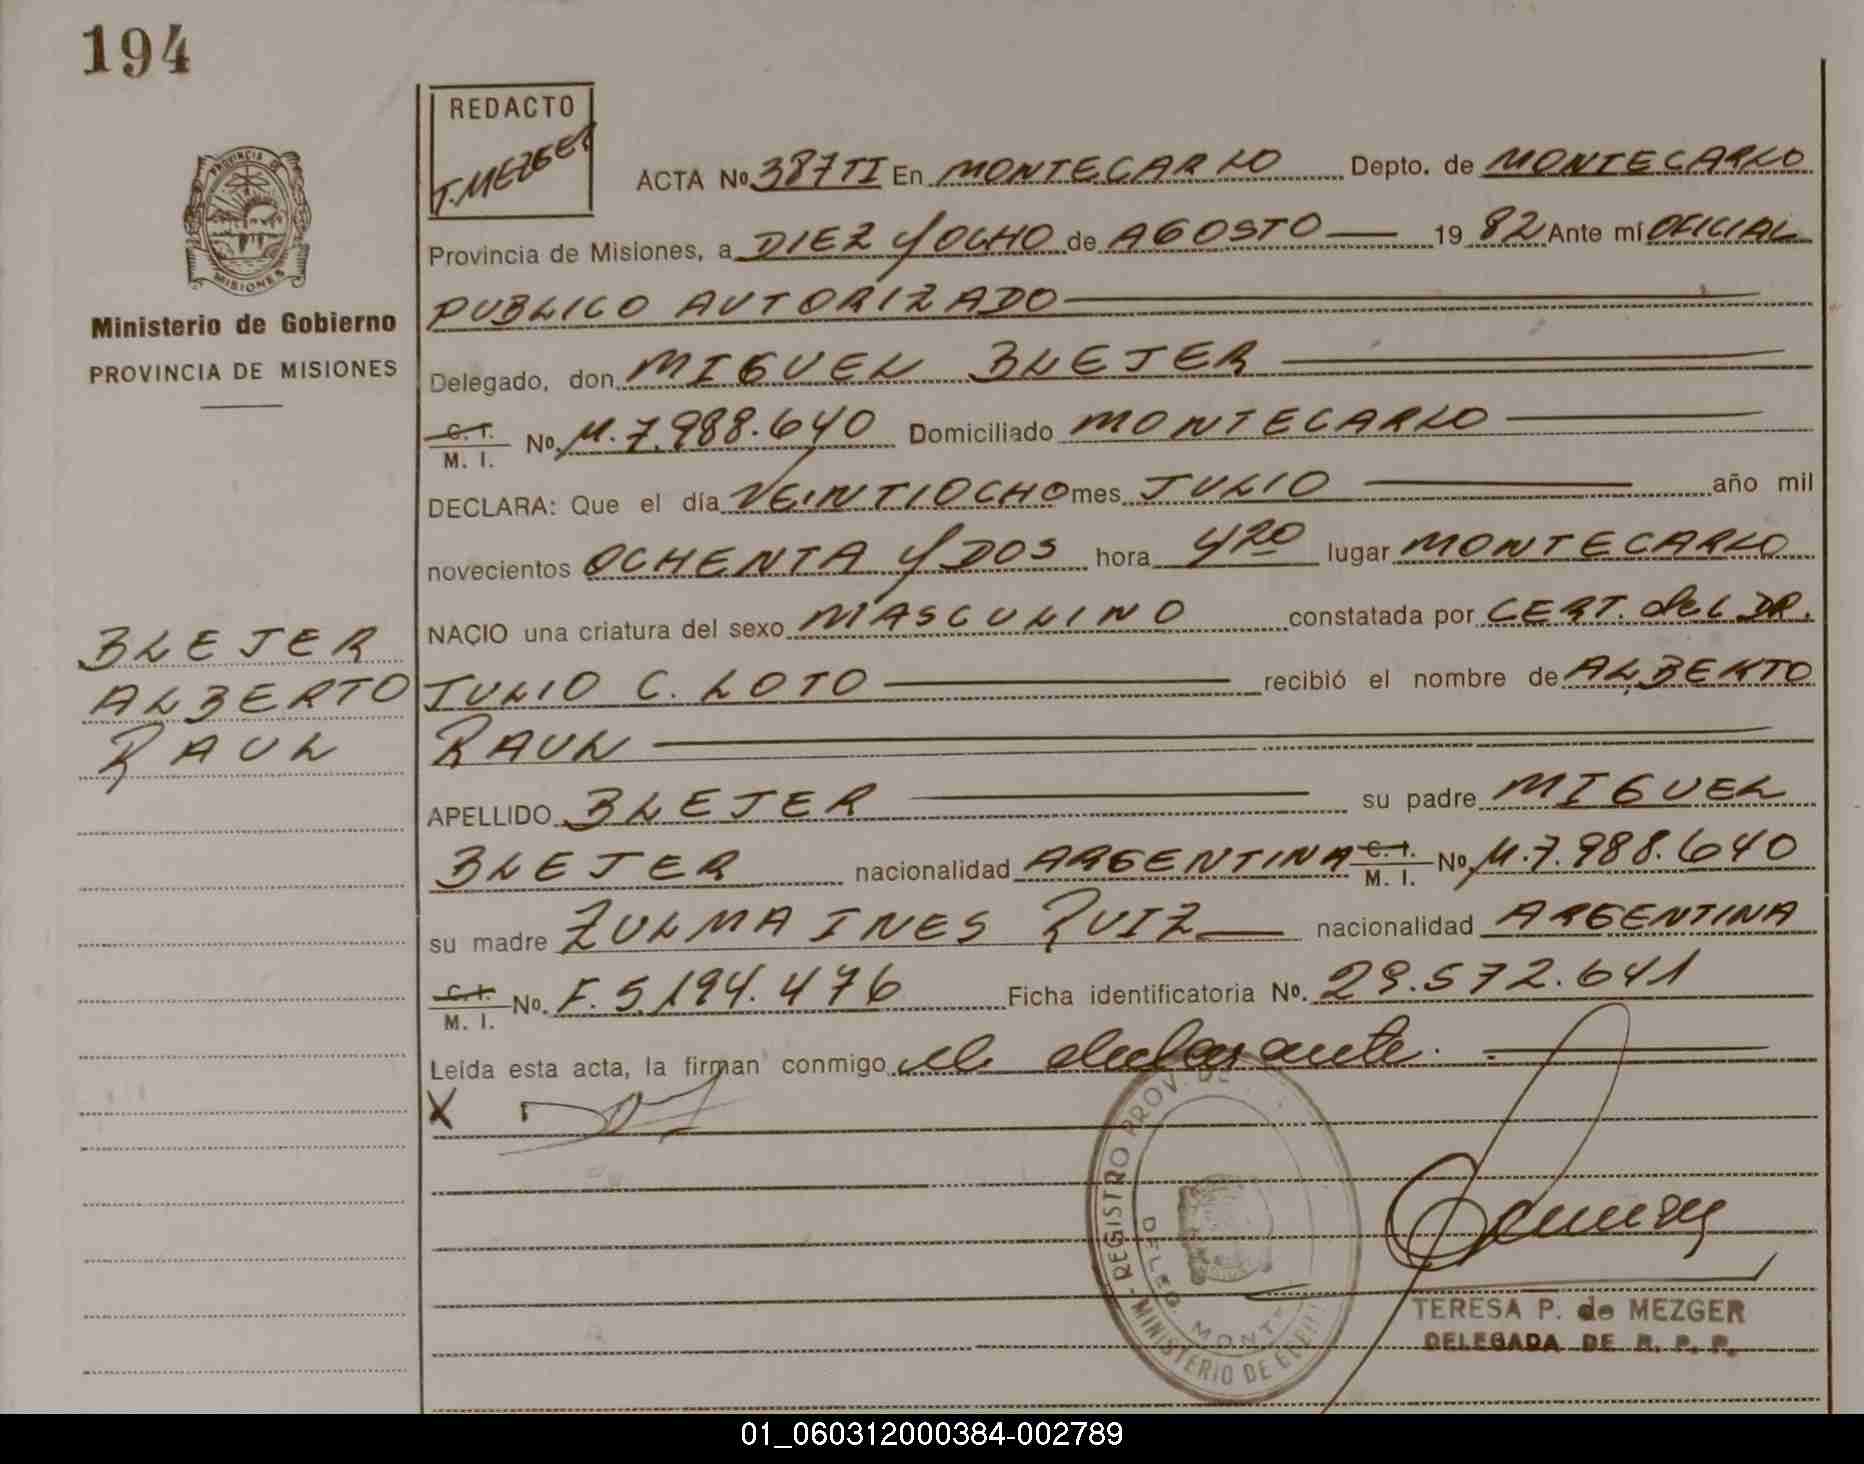 194
REDACTO
T. MEZGER
PROVINCIA DE
MISIONES
ACTA No 387 TI En MONTECARLO Depto. de MONTECARLO
Provincia de Misiones, a DIEZ y OCHO de AGOSTO 19 82 Ante mí OFICIAL
Ministerio de Gobierno
PROVINCIA DE MISIONES
PUBLICO AUTORIZADO
Delegado, don MIGUEL BLEJER
C. I. M. I. No. M. 7.988.640 Domiciliado MONTECARLO
DECLARA: Que el día VEINTIOCHO mes JULIO año mil
novecientos OCHENTA y DOS hora 4 20 lugar MONTECARLO
BLEJER
NACIO una criatura del sexo MASCULINO constatada por CERT. del DR.
ALBERTO
JULIO C. LOTO recibió el nombre de ALBERTO
RAUL
RAUL
APELLIDO BLEJER su padre MIGUEL
BLEJER nacionalidad ARGENTINA C. I. M. I. No. M. 7.988.640
su madre ZULMA INES RUIZ nacionalidad ARGENTINA
C. I. M. I. No. F. 5.194.476 Ficha identificatoria No. 29.572.641
Leída esta acta, la firman conmigo el declarante.
X
REGISTRO PROV. DE
MINISTERIO DE
DELEG. MONT
TERESA P. de MEZGER
DELEGADA DE R. P. P.
01_060312000384-002789